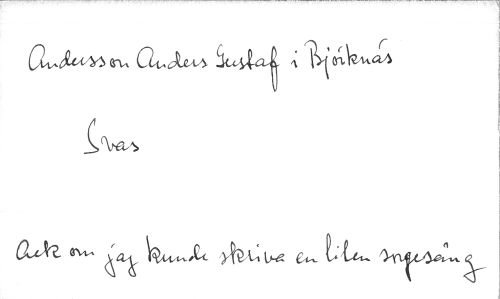 Andersson Anders Gustaf i Björknäs
Svas
Ack om jag kunde skriva en liten sorgesång